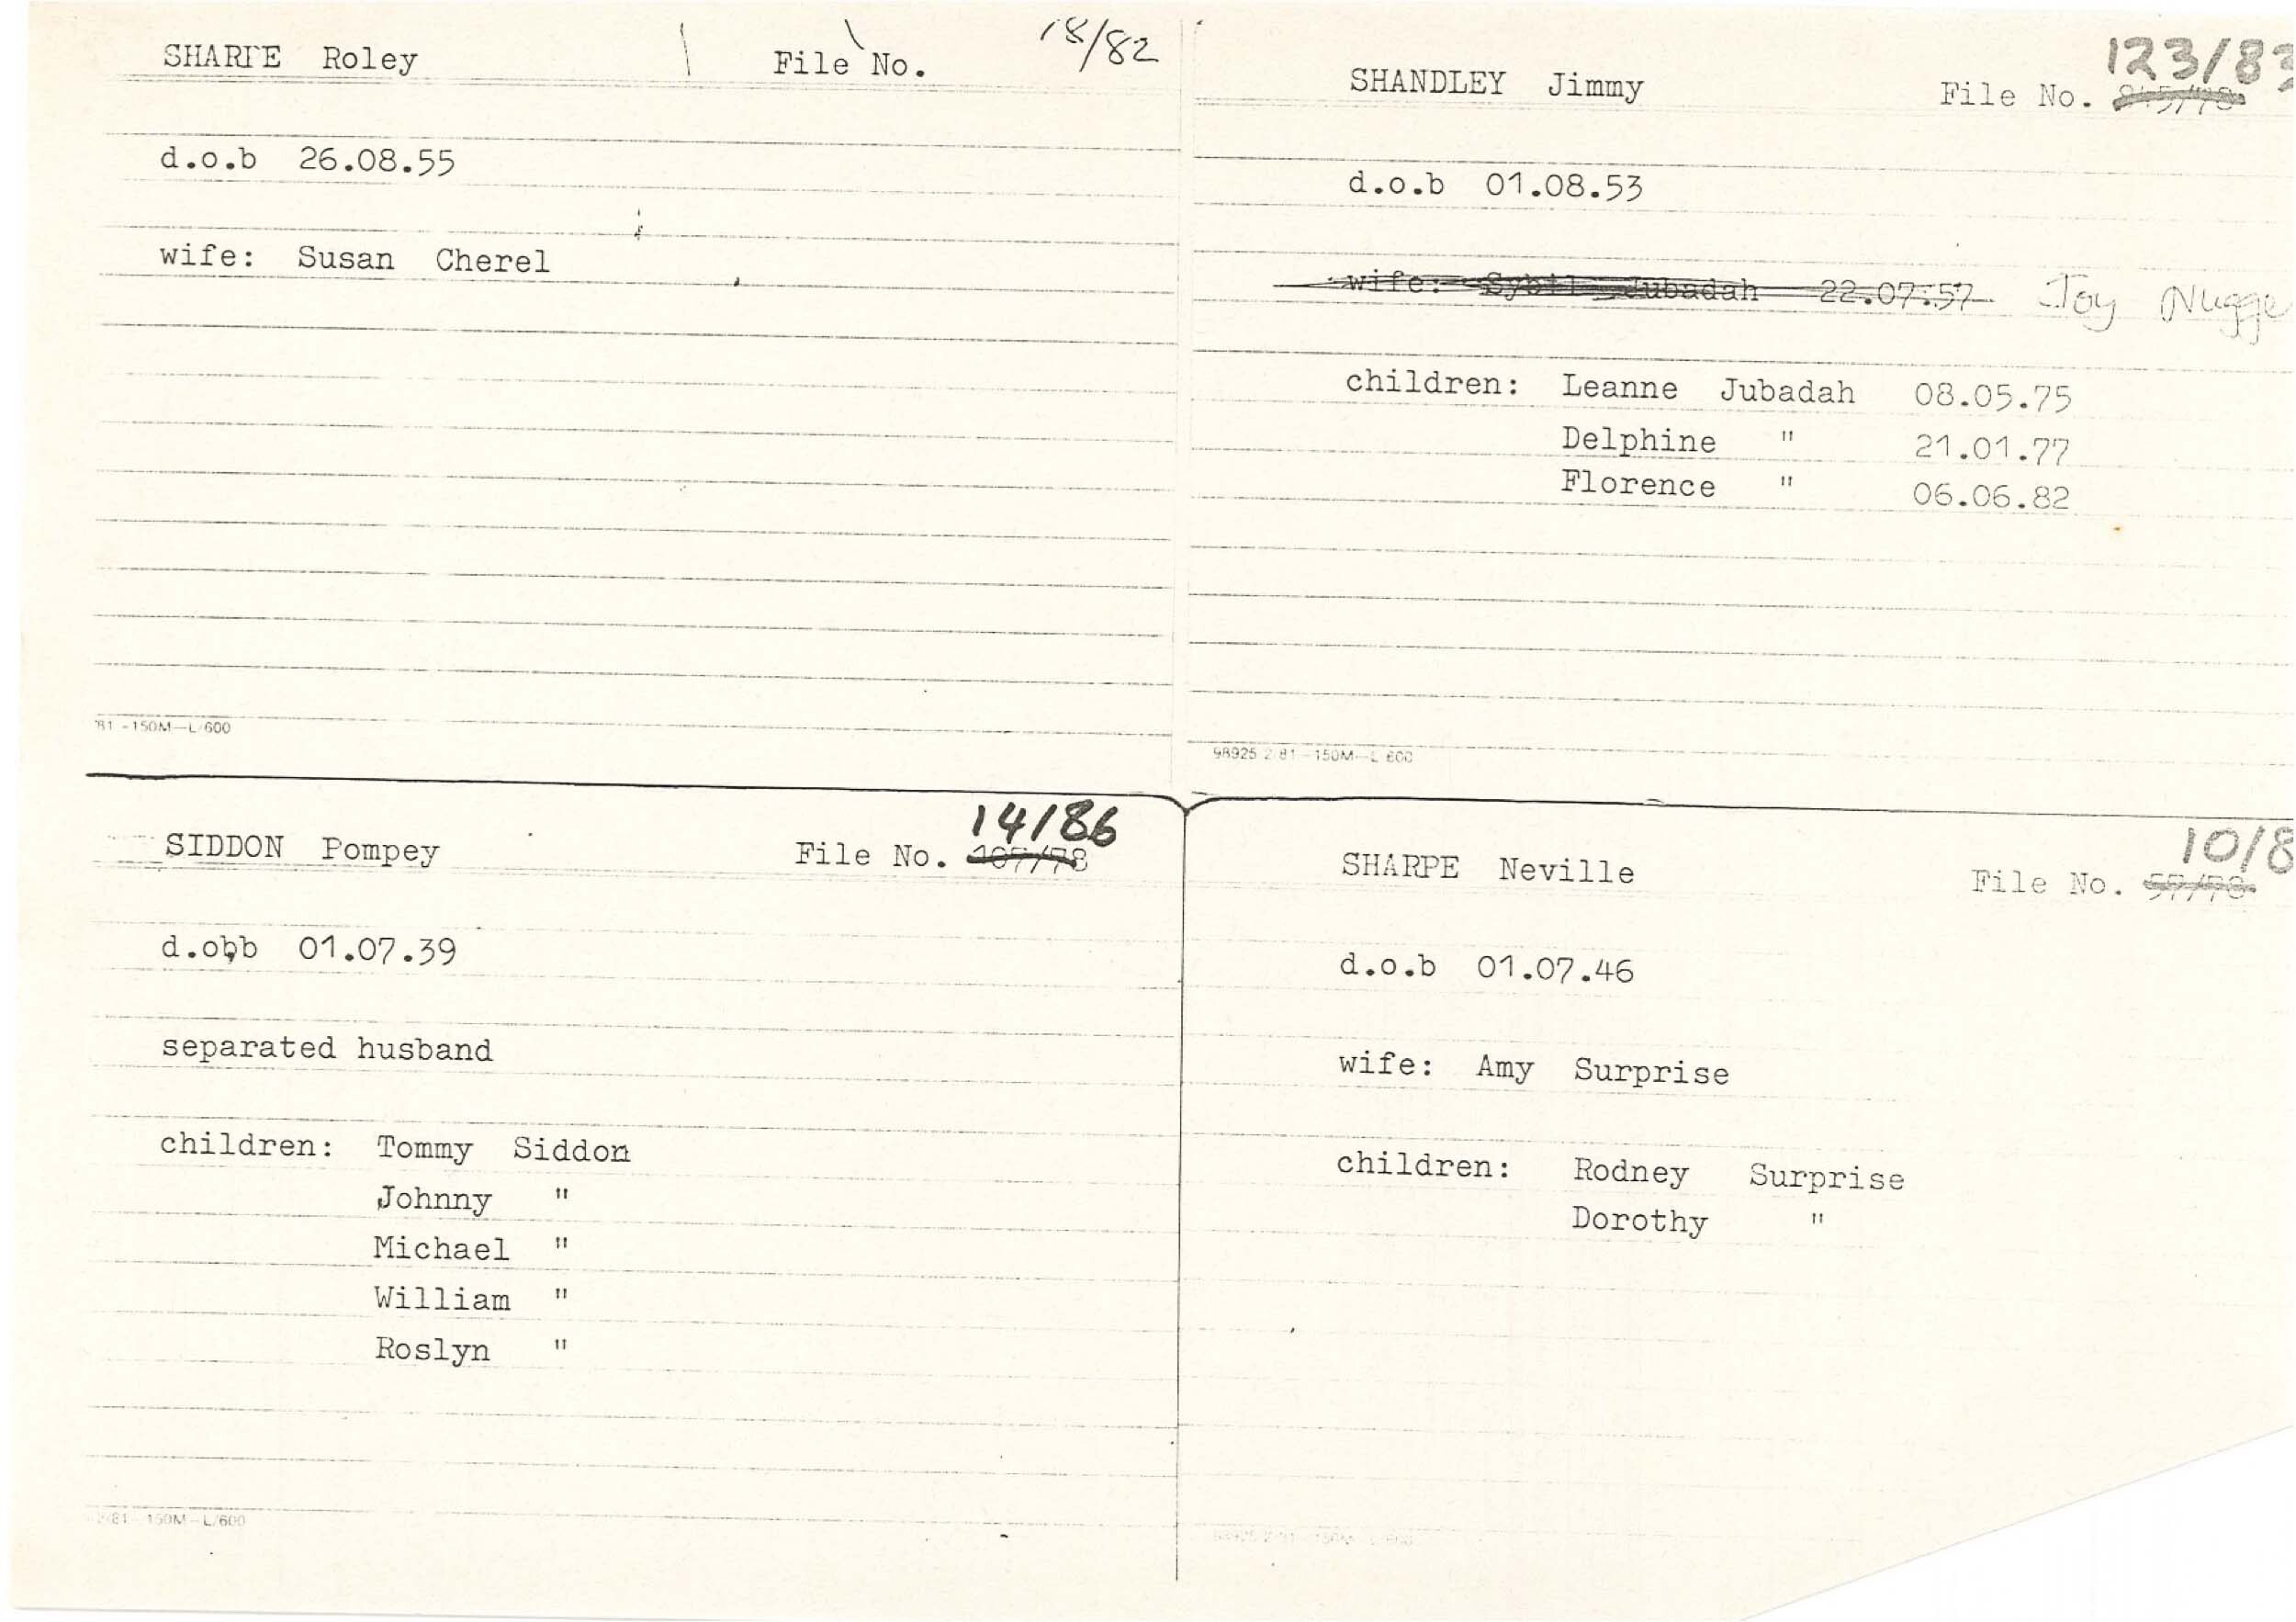 SHARPE Roley File No. 18/82
d.o.b 26.08.55
wife: Susan Cherel
'81 -150M-L/600
SHANDLEY Jimmy File No. 123/83
d.o.b 01.08.53
wife: Sybil Jubadah 22.07.57 Joy Nugge
children: Leanne Jubadah 08.05.75
Delphine " 21.01.77
Florence " 06.06.82
98925 2/81-150M-L 600
SIDDON Pompey File No. 14/86
d.obb 01.07.39
separated husband
children: Tommy Siddon
Johnny "
Michael "
William "
Roslyn "
81-150M-L/600
SHARPE Neville File No. 10/8
d.o.b 01.07.46
wife: Amy Surprise
children: Rodney Surprise
Dorothy "